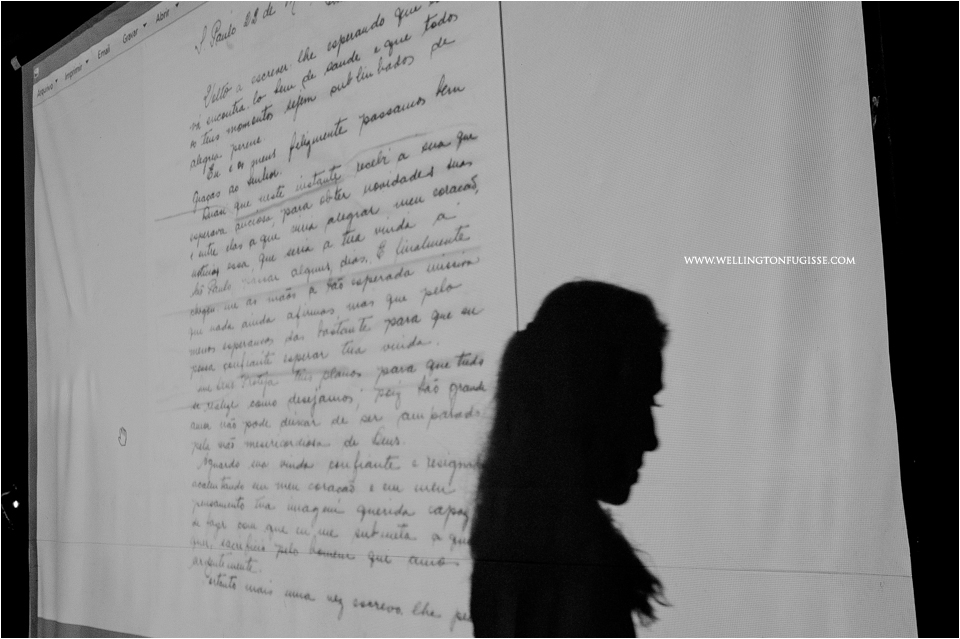 Arquivo Imprimir Email Gravar Abrir
S. Paulo 22 de
Volto a escrever-lhe esperando que
vá encontra-lo bem de saude e que todos
os teus momentos sejem sublinhados de
alegria perene.
Eu e os meus felizmente passamos bem
Graças ao Senhor.
Quasi que neste instante recebi a sua que
esperava anciosa, para obter novidades suas
e entre elas a que viria alegrar meu coracão,
essa, que seria a tua vinda á
São Paulo, passar alguns dias. E finalmente
chegou-me as mãos a tão esperada missiva
que nada ainda afirmas, mas que pelo
menos esperancas das bastante para que eu
possa confiante esperar tua vinda.
que Deus Proteja teus planos para que tudo
se realize como desejamos, poiz tão grande
amor não pode deixar de ser amparado
pela mão misericordiosa de Deus.
Aguardo sua vinda confiante e resignada
acalentando em meu coracão e em meu
pensamento tua imagem querida capaz
de fazer com que eu me submeta a qual
quer sacrificio pelo homem que amo
ardentemente.
Portanto mais uma vez escrevo-lhe
WWW.WELLINGTONFUGISSE.COM